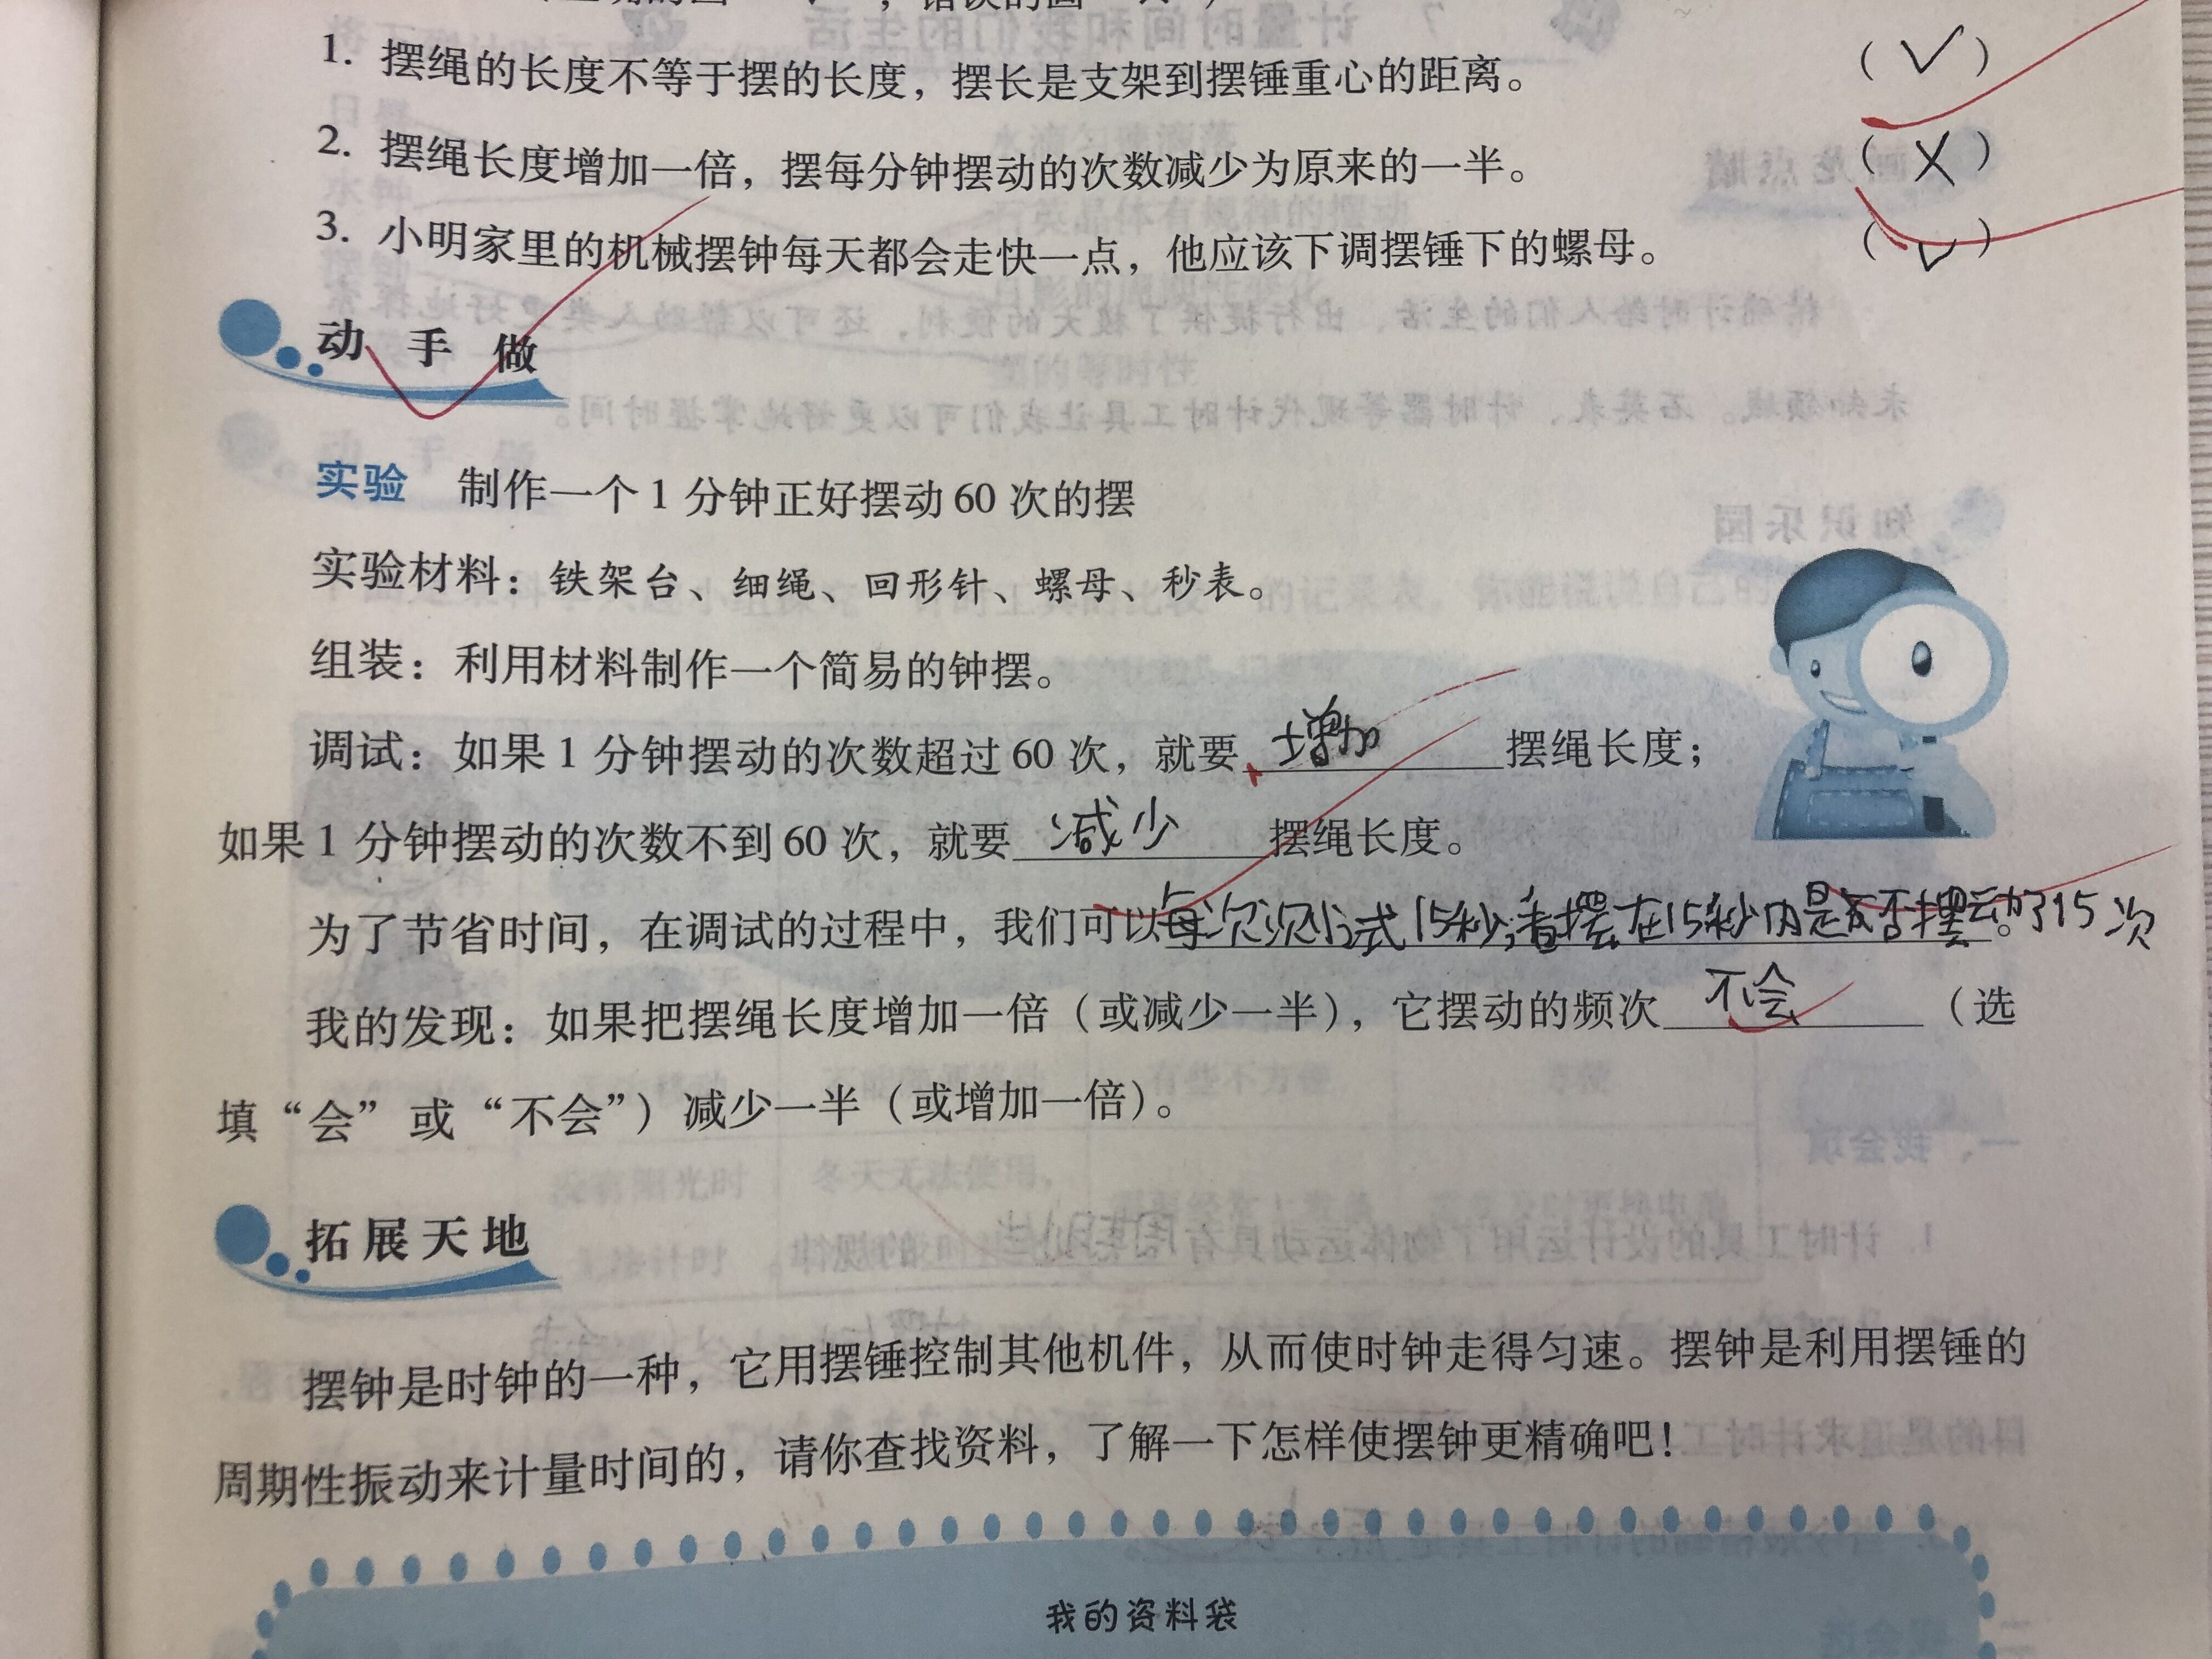 1. 摆绳的长度不等于摆的长度，摆长是支架到摆锤重心的距离。 (√)
2. 摆绳长度增加一倍，摆每分钟摆动的次数减少为原来的一半。 (X)
3. 小明家里的机械摆钟每天都会走快一点，他应该下调摆锤下的螺母。 (√)
动手做
实验 制作一个1分钟正好摆动60次的摆
实验材料：铁架台、细绳、回形针、螺母、秒表。
组装：利用材料制作一个简易的钟摆。
调试：如果1分钟摆动的次数超过60次，就要增加摆绳长度；
如果1分钟摆动的次数不到60次，就要减少摆绳长度。
为了节省时间，在调试的过程中，我们可以每次测试15秒，看摆在15秒内是否摆动了15次。
我的发现：如果把摆绳长度增加一倍（或减少一半），它摆动的频次不会（选
填“会”或“不会”）减少一半（或增加一倍）。
拓展天地
摆钟是时钟的一种，它用摆锤控制其他机件，从而使时钟走得匀速。摆钟是利用摆锤的
周期性振动来计量时间的，请你查找资料，了解一下怎样使摆钟更精确吧！
我的资料袋